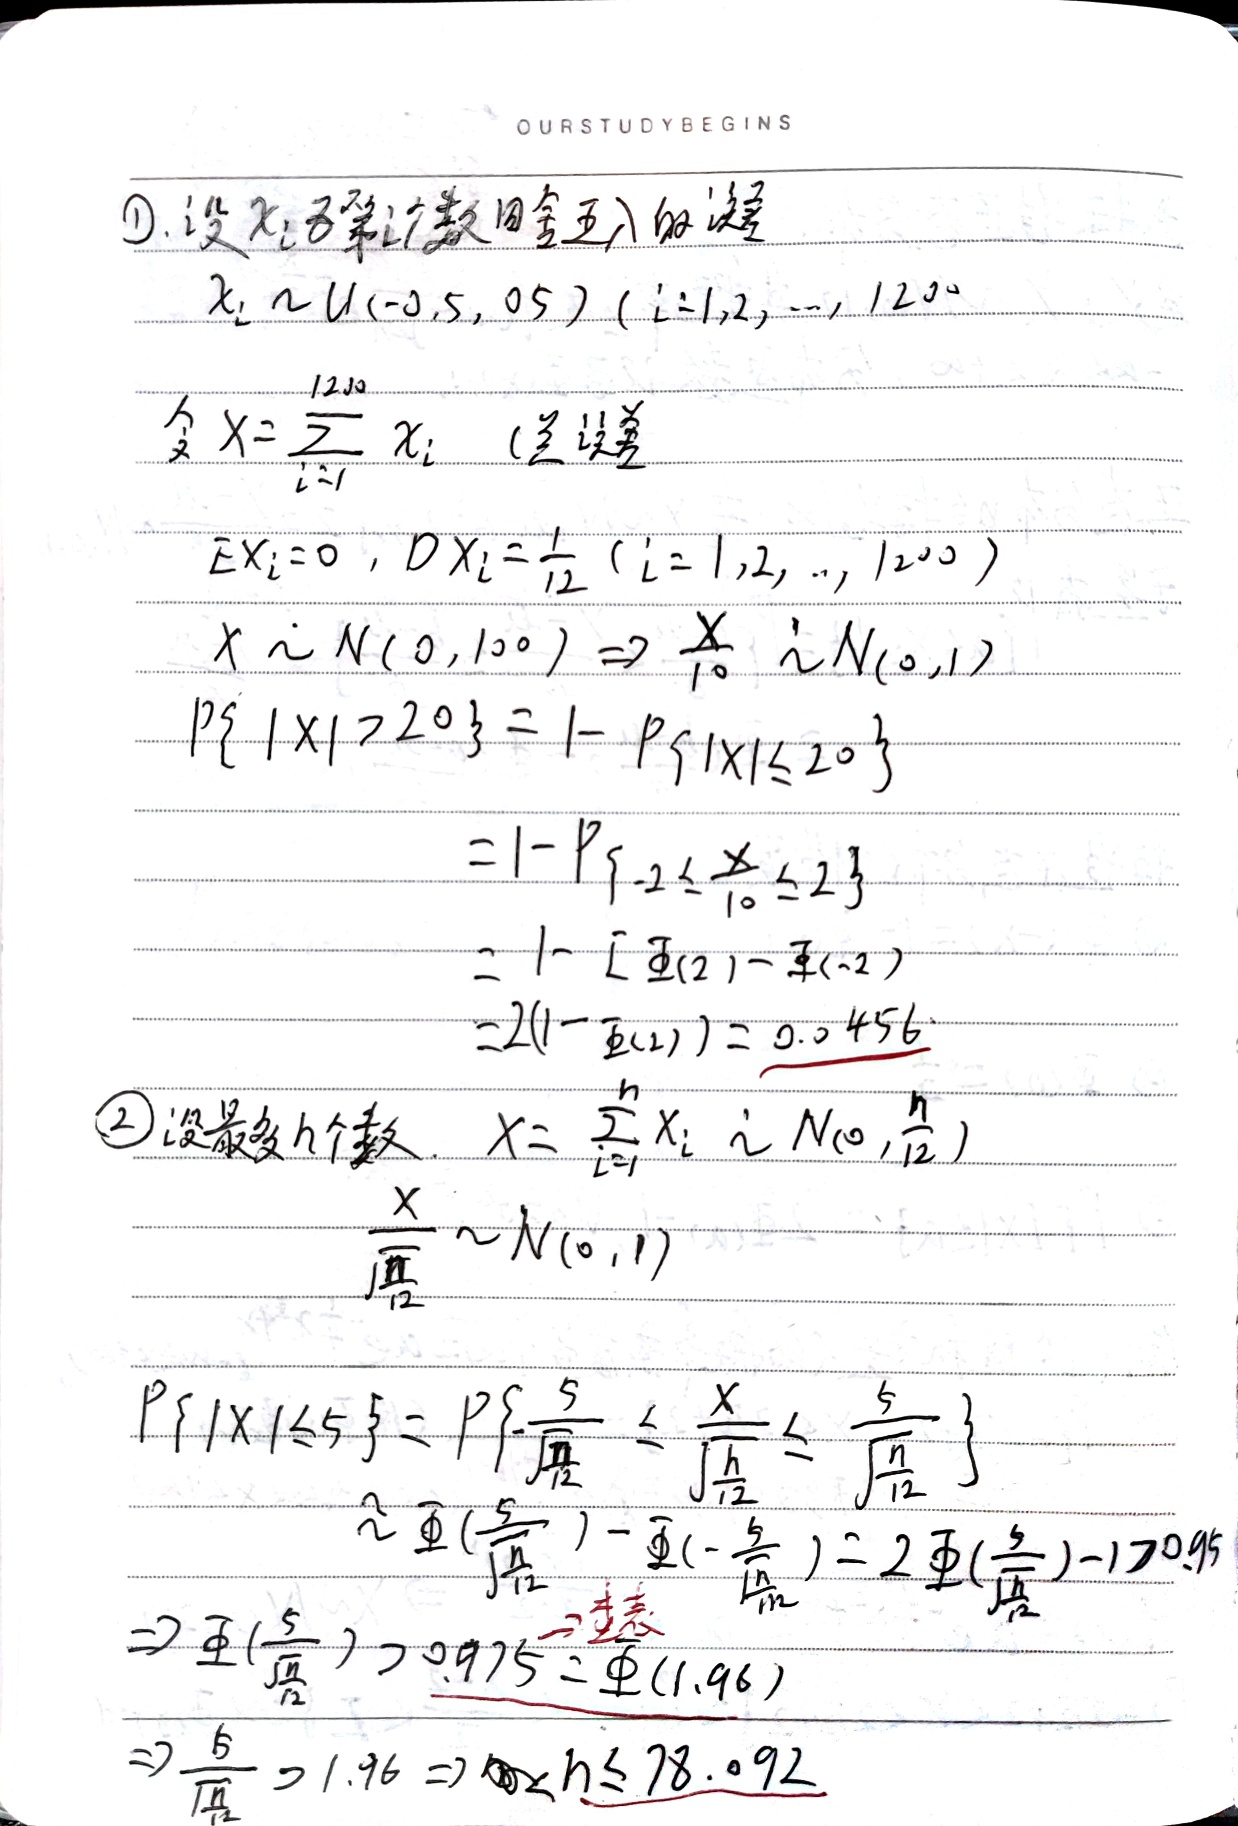 OURSTUDYBEGINS
①.设Xi为第i个数四舍五入的误差
Xi ~ U(-0.5, 05) (i=1,2, ..., 1200
令 X = ∑_{i=1}^{1200} Xi (总误差
EXi=0, DXi=1/12 (i=1,2, .., 1200)
X ~ N(0,100) ⇒ X/10 ~ N(0,1)
P{|X|>20} = 1- P{|X|≤20}
=1-P{-2≤X/10≤2}
= 1- [Φ(2)-Φ(-2)
=2(1-Φ(2)) = 0.0456
②设最多n个数. X= ∑_{i=1}^{n} Xi ~ N(0, n/12)
X/√(n/12) ~ N(0,1)
P{|X|≤5} = P{-5/√(n/12) ≤ X/√(n/12) ≤ 5/√(n/12)}
≈ Φ(5/√(n/12)) - Φ(-5/√(n/12)) = 2Φ(5/√(n/12))-1>0.95
⇒查表
⇒ Φ(5/√(n/12)) > 0.975 = Φ(1.96)
⇒ 5/√(n/12) > 1.96 ⇒ n≤78.092